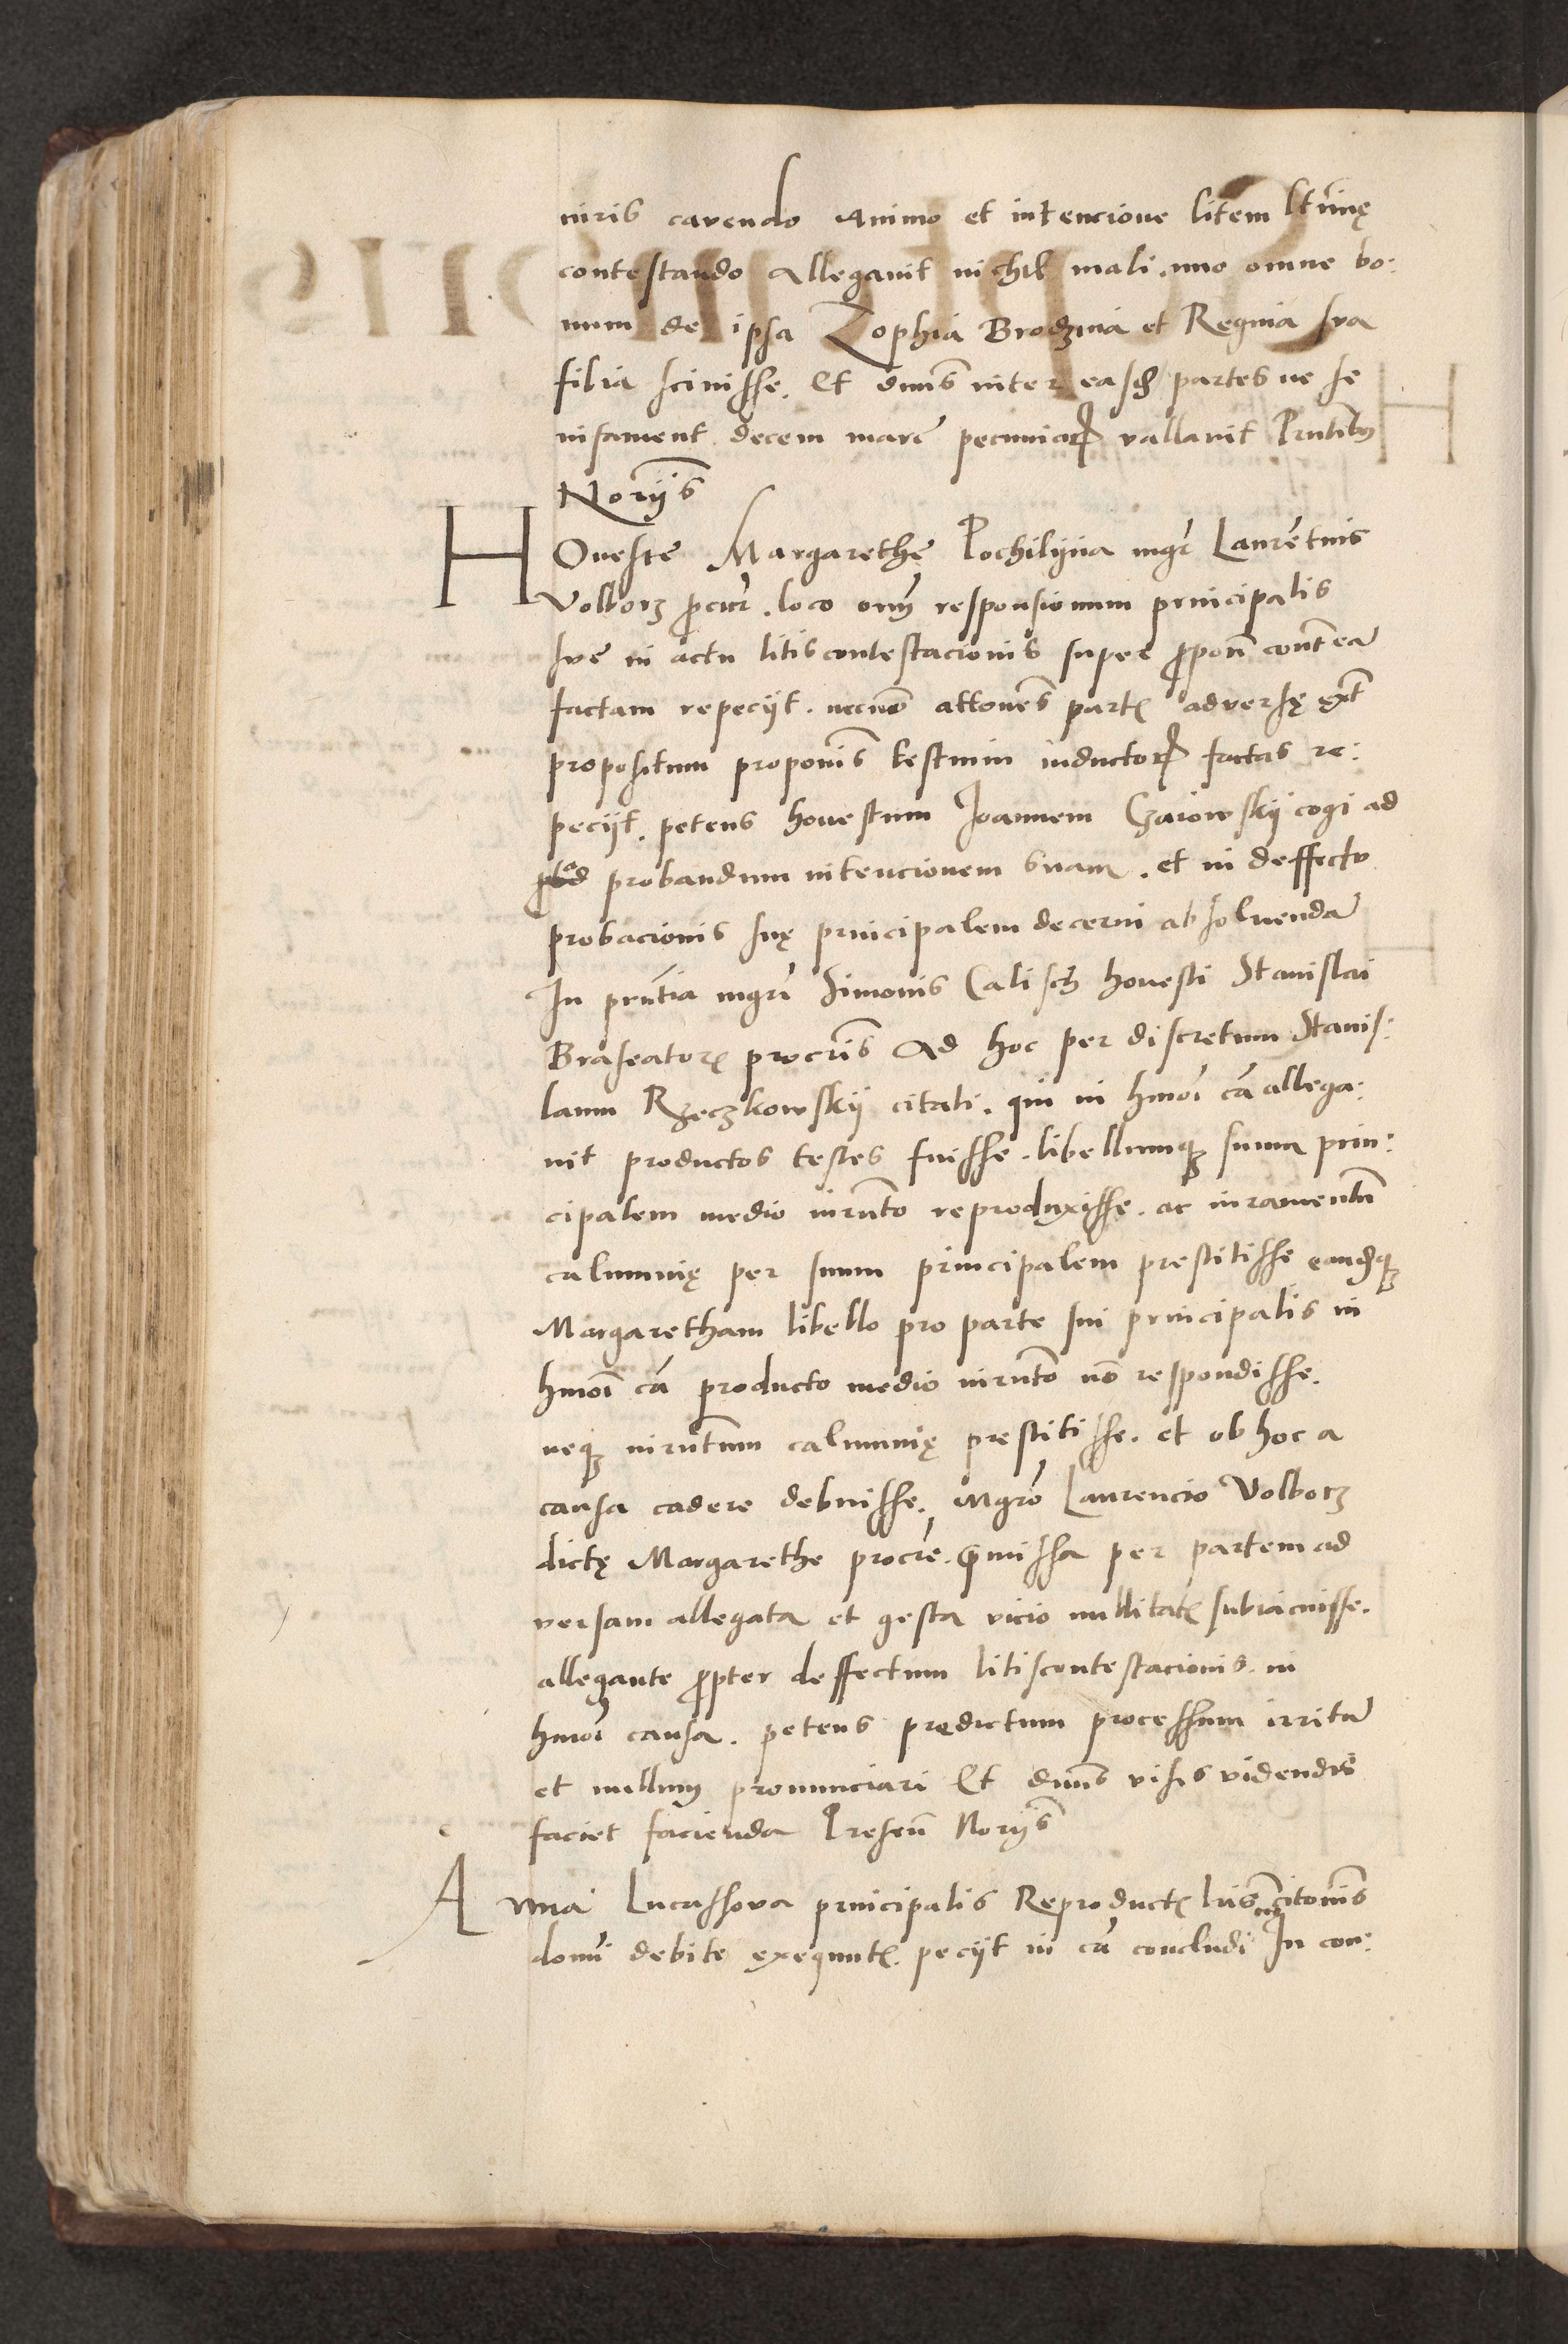 niris cavendo Animo et intencione litem ltīmę
contestando Allegavit nichil mali. imo omne bo:
num de ipsa Zophia Brodzina et Regina sua
filia scivisse. Et dnus inter easd partes ne se
infament decem marc pecuniar vallavit Pntibus
Norijs
HOneste Margarethe Pochilijna mgr Laurētius
Volborz procur. loco oīm responsionum principalis
sue in actu litiscontestacionis super propon cont ea
factam repecijt. necnō attones part adversę ext
propositum proponis testium inductor factas re:
pecijt. petens honestum Joannem Czaiowskij cogi ad
probandum intencionem suam. et in deffectu
probacionis suę principalem decerni absoluendā
In pntia mgri Simonis Calisch honesti Stanislai
Braseator procris Ad hoc per discretum Stanis:
laum Rzeczkowskij citati. qui in hmoi cā allega:
vit productos testes fuisse. libellumq suum prin:
cipalem medio iurnto reproduxisse. ac iuramentū
calumnię per suum principalem prestitisse eandq
Margaretham libello pro parte sui principalis in
hmoi cā producto medio iurnto nō respondisse.
neq iurntum calumnię prestitisse. et ob hoc a
causa cadere debuisse. Mgro Laurencio Volborz
dictę Margarethe procre. pmissa per partem ad
versam allegata et gesta vicio nullitat subiacuisse.
allegante propter deffectum litiscontestacionis. in
hmoi causa. petens prędictum processum irritū
et nullum pronunciari Et dnus visis videndis
faciet facienda Presen Norijs
Anna Lucassova principalis Reproduct lris citonis
domi debite exequut. pecijt in cā concludi In con: